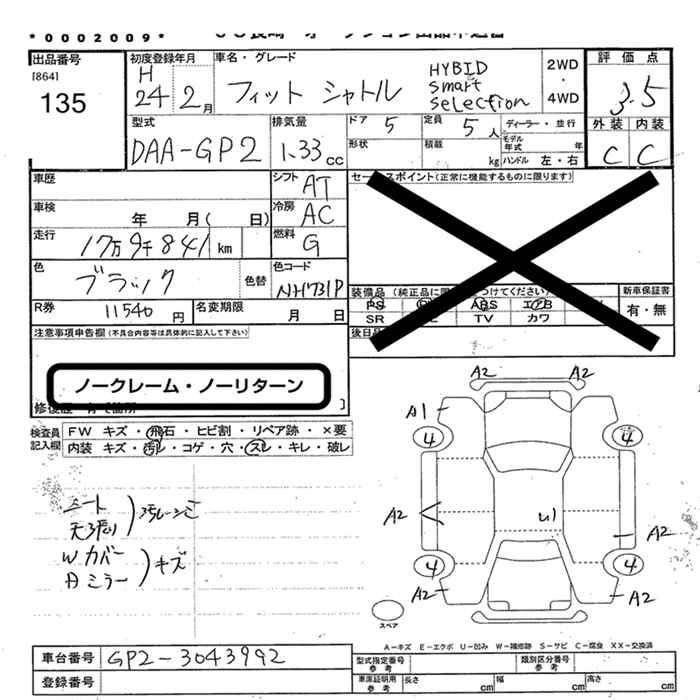 *0002009*
出品番号
[864]
135
初度登録年月
H
24 2月
車名・グレード
フィット シャトル HYBID
Smart
Selection
2WD
・
4WD
評価点
3.5
外装 内装
C C
型式
DAA-GP2
排気量
1.33cc
ドア 5
形状
定員 5人
積載 kg
ディーラー・並行
モデル年式 年
ハンドル 左・右
車歴
シフト AT
車検 年 月( 日)
冷房 AC
走行 17万9千841km
燃料 G
色 ブラック 色替
色コード NH731P
R券 11540円
名変期限 月 日
セールスポイント(正常に機能するものに限ります)
PS ABS エアB
SR TV カワ
新車保証書
有・無
注意事項申告欄(不具合内容等は具体的に記入して下さい)
ノークレーム・ノーリターン
検査員
記入欄
FW キズ・飛石・ヒビ割・リペア跡・×要
内装 キズ・汚れ・コゲ・穴・スレ・キレ・破レ
シート
天張り
Wカバー
キズ
A2 A2
A1
4 4
A2
U1
A2
4 4
A2
A2
スペア
A-キズ E-エクボ U-凹み W-補修跡 S-サビ C-腐食 XX-交換済
車台番号 GP2-3043992
登録番号
型式指定番号
参考
類別区分番号
参考
車庫証明用
参考
長さ cm 幅 cm 高さ cm